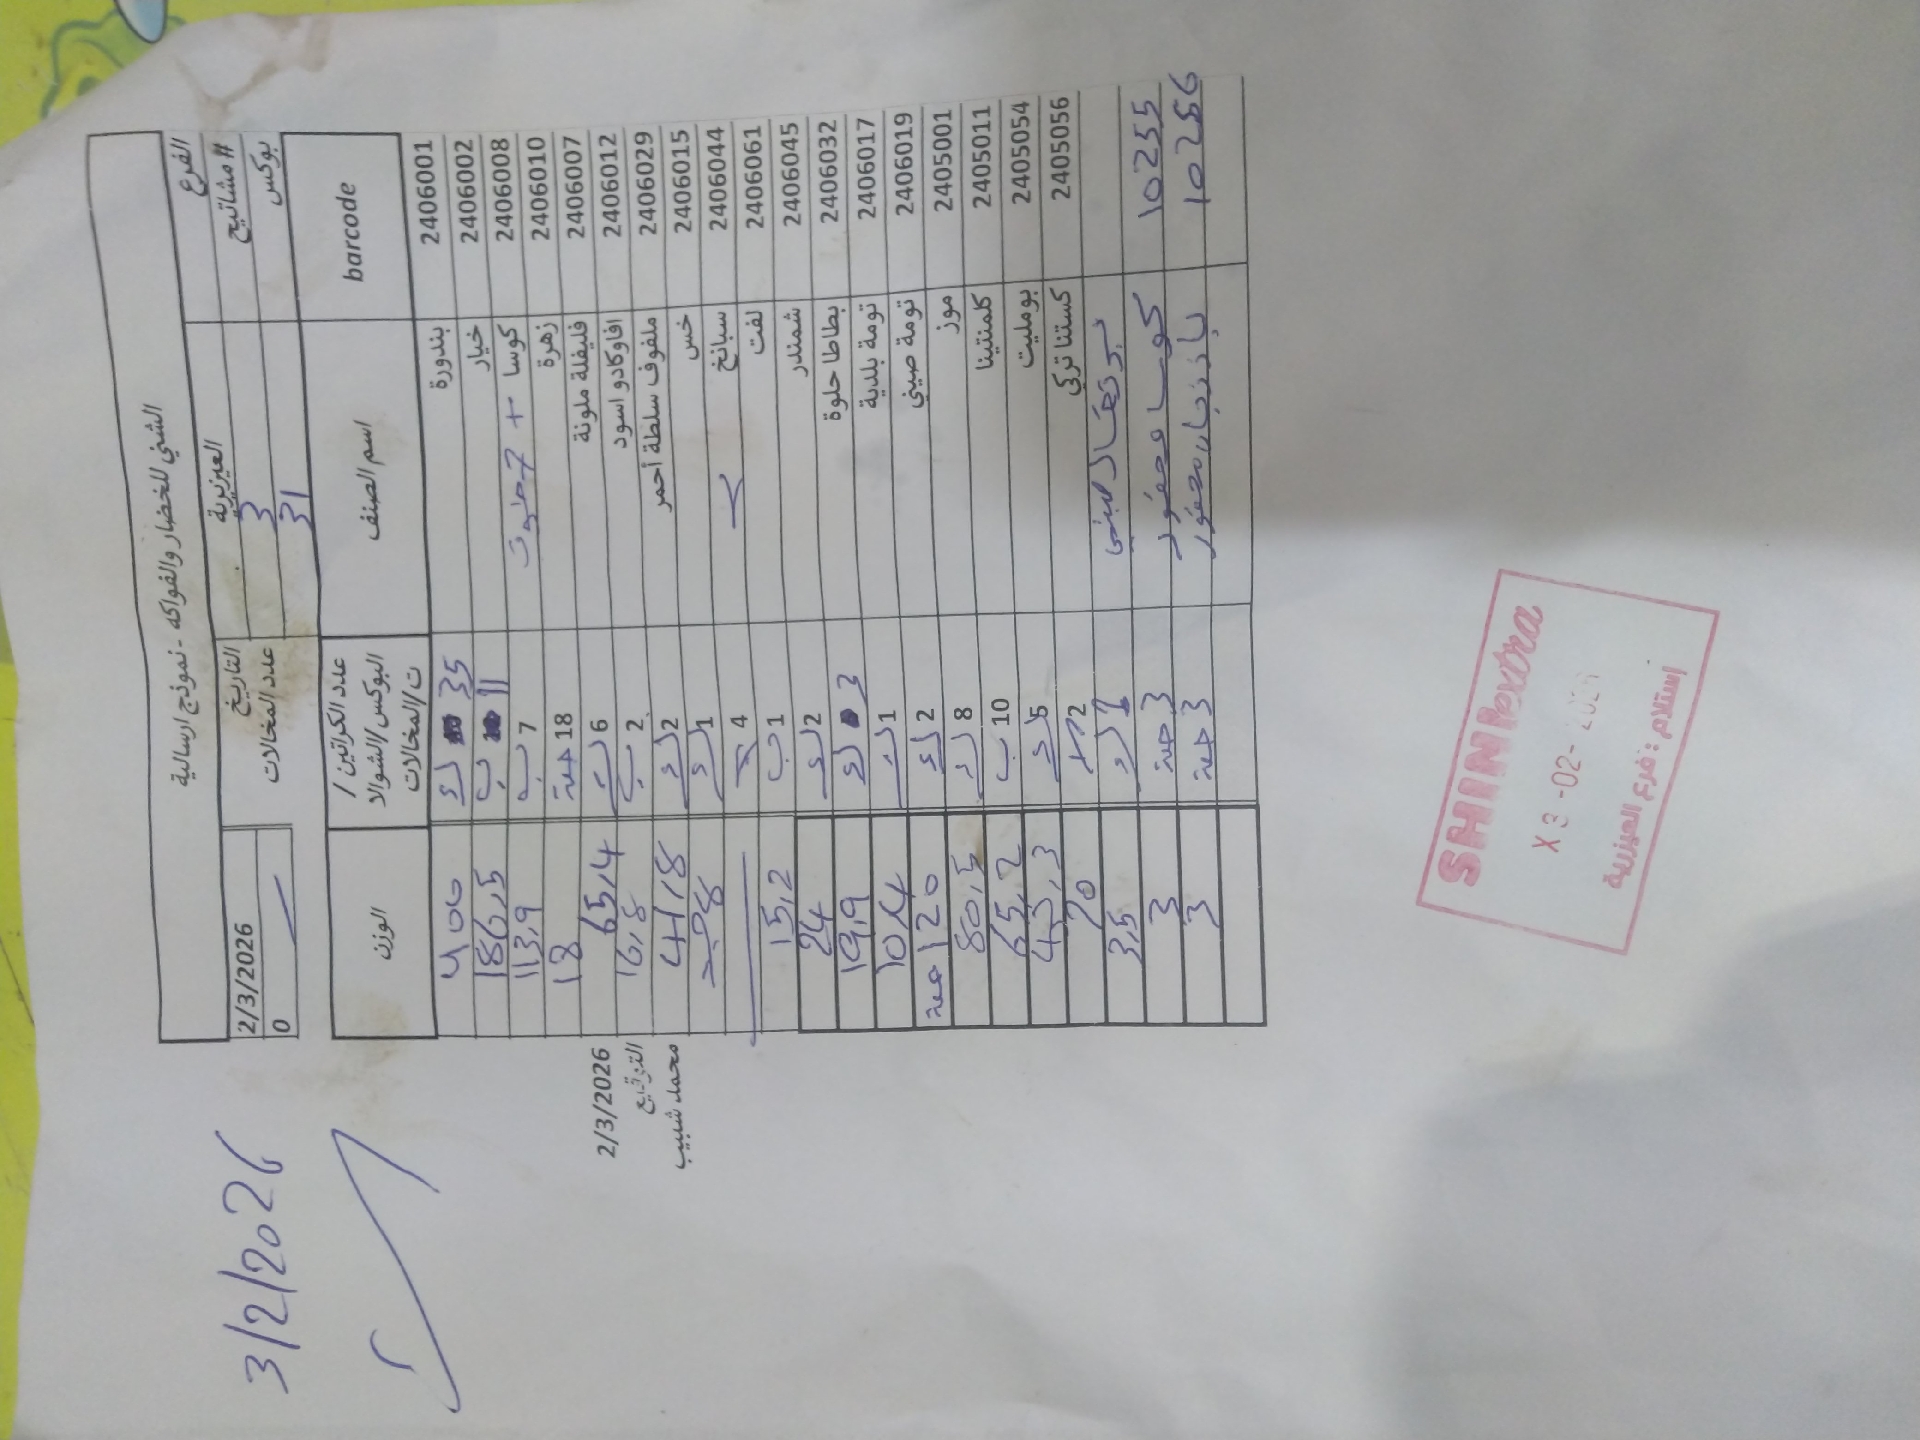 الشني للخضار والفواكه - نموذج ارسالية
الفرع العيزرية التاريخ 2/3/2026
# مشاتيح 3 عدد المخالات 0
بوكس 31
barcode اسم الصنف عدد الكراتين / البوكس/الشوالات/المخالات الوزن
2406001 بندورة 35 406
2406002 خيار ب 11 186,5
2406008 كوسا + ب 7 113,9
2406010 زهرة حبة 18 18
2406007 فليفلة ملونة 6 65,4
2406012 افاوكادو اسود ب 2 16,8
2406029 ملفوف سلطة أحمر 2 41,8
2406015 خس 1
2406044 سبانخ 4
2406061 لفت ب 1 15,2
2406045 شمندر 2 24
2406032 بطاطا حلوة 3 19,9
2406017 تومة بلدية 1 10,4
2406019 تومة صيني 2 120 حبة
2405001 موز 8 80,5
2405011 كلمنتينا ب 10 65,2
2405054 بومليت 5 43,3
2405056 كستنا تركي 2 20
برتقال صيني 3,5
10255 كوسا محفور 3 حبة 3
10256 باذنجان محفور 3 حبة 3
2/3/2026
التوقيع
محمد شبيب
3/2/2026
SHINI extra
X 3 -02-
إستلام : فرع العيزرية